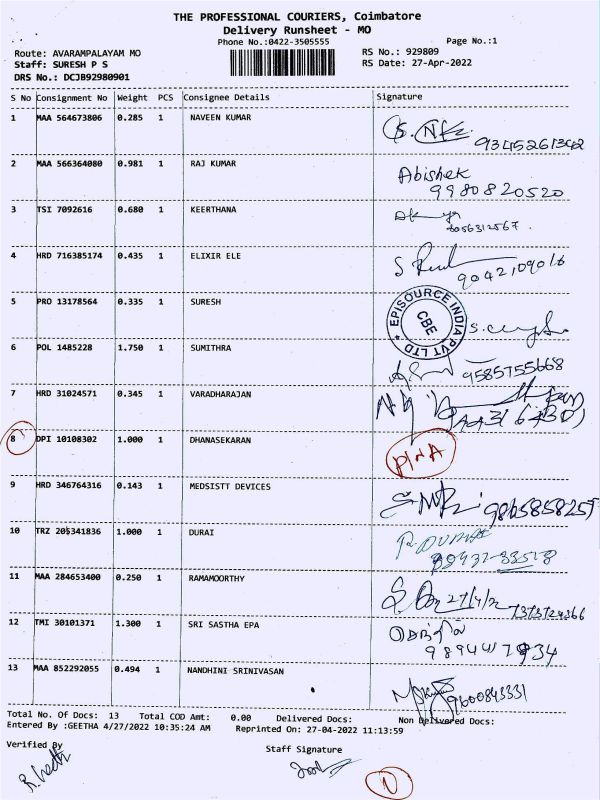 THE PROFESSIONAL COURIERS, Coimbatore
Delivery Runsheet - MO
Phone No.:0422-3505555 Page No.:1
Route: AVARAMPALAYAM MO RS No.: 929809
Staff: SURESH P S RS Date: 27-Apr-2022
DRS No.: DCJB92980901
S No Consignment No Weight PCS Consignee Details Signature
1 MAA 564673806 0.285 1 NAVEEN KUMAR
2 MAA 566364080 0.981 1 RAJ KUMAR Abishek
9980820520
3 TSI 7092616 0.680 1 KEERTHANA
4 HRD 716385174 0.435 1 ELIXIR ELE
9042109016
5 PRO 13178564 0.335 1 SURESH EPISOURCE INDIA PVT LTD CBE
6 POL 1485228 1.750 1 SUMITHRA
9585755668
7 HRD 31024571 0.345 1 VARADHARAJAN
8 DPI 10108302 1.000 1 DHANASEKARAN
9 HRD 346764316 0.143 1 MEDSISTT DEVICES
10 TRZ 205341836 1.000 1 DURAI
11 MAA 284653400 0.250 1 RAMAMOORTHY
27/4/2
12 TMI 30101371 1.300 1 SRI SASTHA EPA
13 MAA 852292055 0.494 1 NANDHINI SRINIVASAN
9600843331
Total No. Of Docs: 13 Total COD Amt: 0.00 Delivered Docs: Non Delivered Docs:
Entered By :GEETHA 4/27/2022 10:35:24 AM Reprinted On: 27-04-2022 11:13:59
Verified By Staff Signature